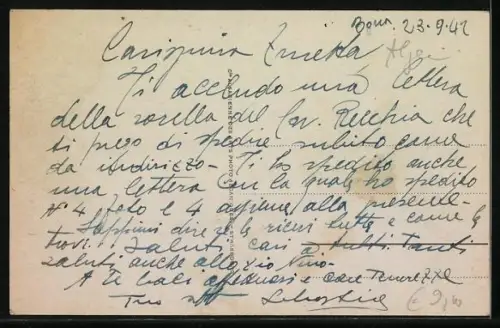 Bona 23-9-42
Carissima Enrietta
Ti accludo una lettera
della sorella del Cav. Recchia che
ti prego di spedire subito come
da indirizzo - Ti ho spedito anche
una lettera con la quale ho spedito
N° 4 foto e 4 assieme alla presente -
Sappimi dire se le ricevi tutte e come le
trovi. Saluti cari a tutti Tanti
saluti anche allo zio Nino -
A te baci affettuosi e care tenerezze
Tuo
€ 9,00